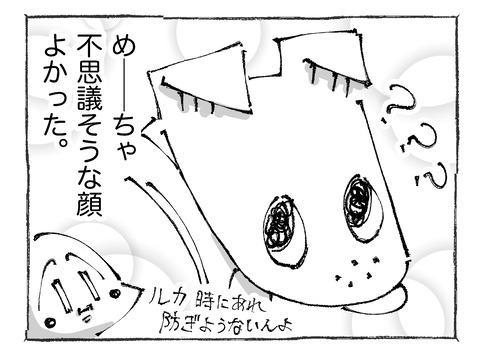 め――ちゃ
不思議そうな顔
よかった。
???
ルカ 時にあれ
防ぎようないんよ